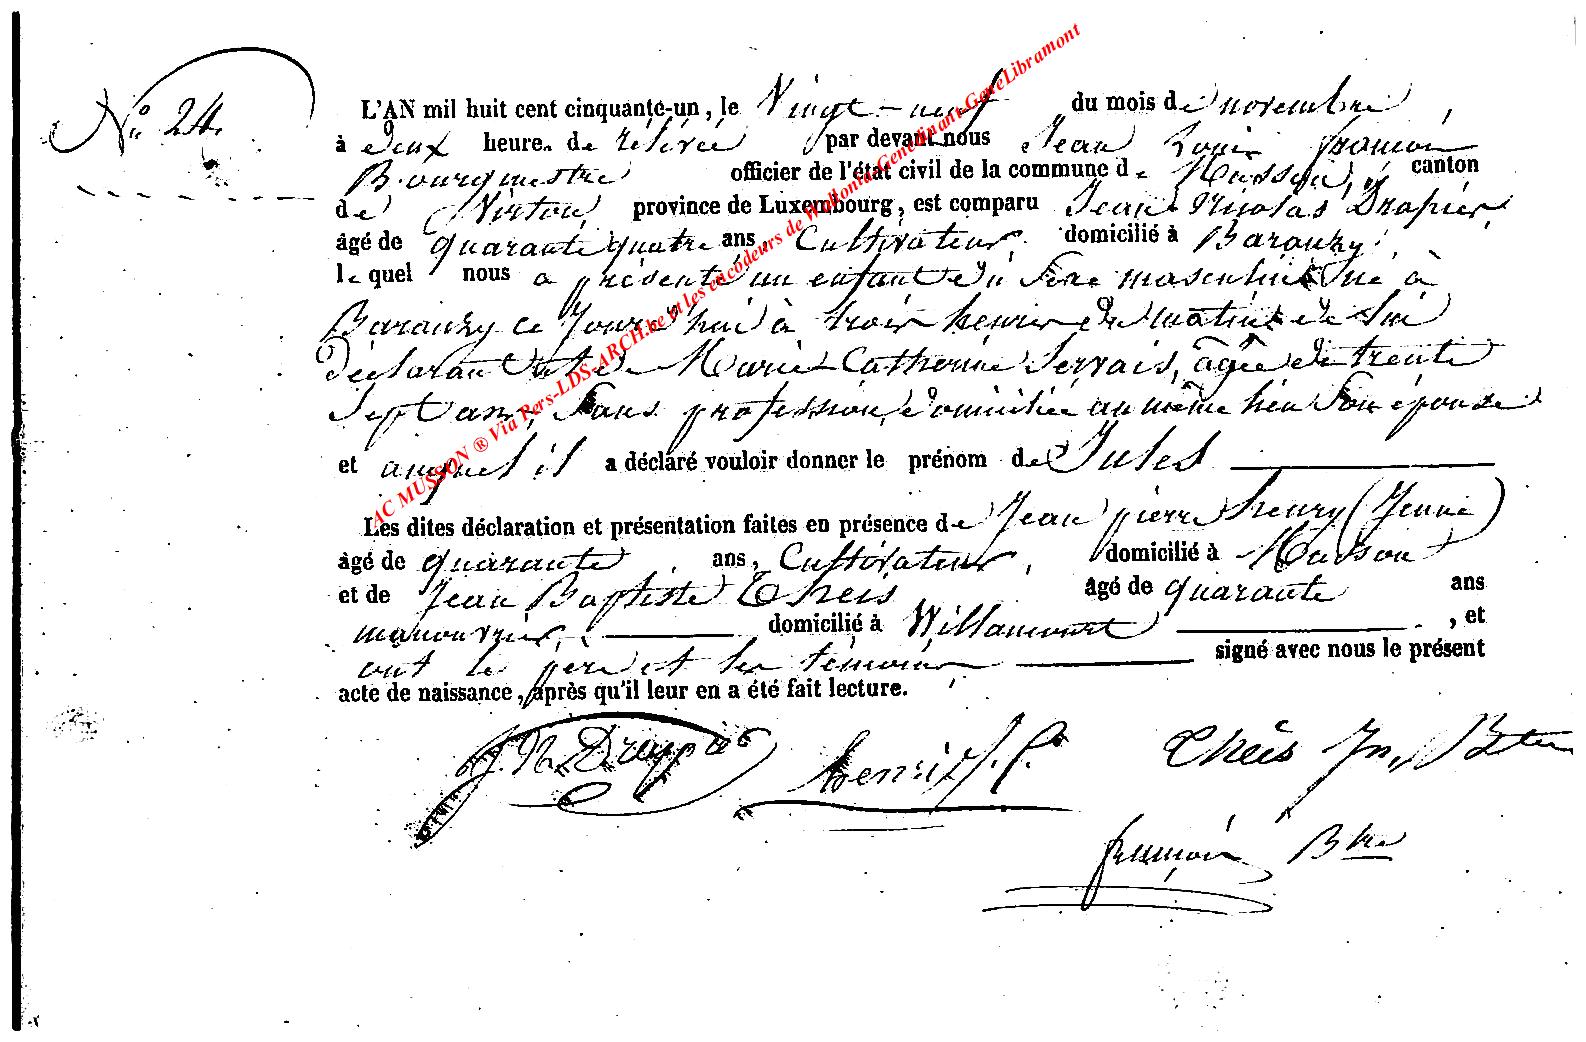 N° 24.
L'AN mil huit cent cinquante-un, le Vingt-neuf du mois de novembre,
à deux heure. de rélévée par devant nous Jean Louis
Bourgmestre officier de l'état civil de la commune de Musson, canton
de Virton, province de Luxembourg, est comparu Jean-Nicolas Drapier,
âgé de quarante quatre ans, Cultivateur. domicilié à Baranzy.
le quel nous a présenté un enfant du sexe masculin né à
Baranzy ce jourd'hui à trois heures du matin de lui
déclarant et de Marie-Catherine Servais, âgée de trente
sept ans, sans profession, domiciliée au même lieu son épouse
et auquel il a déclaré vouloir donner le prénom de Jules
Les dites déclaration et présentation faites en présence de Jean pierre henry (Jeune)
âgé de quarante ans, Cultivateur, domicilié à Musson
et de Jean Baptiste Theis âgé de quarante ans
manouvrier, domicilié à Willancourt, et
ont le père et les témoins signé avec nous le présent
acte de naissance, après qu'il leur en a été fait lecture.
J. N. Drapier henri J. P. Theis Jn, Bte
Btre
AC MUSSON ® Via Pers-LDS-ARCH.be et les encodeurs de Wallonia-Genedinant-GeneLibramont